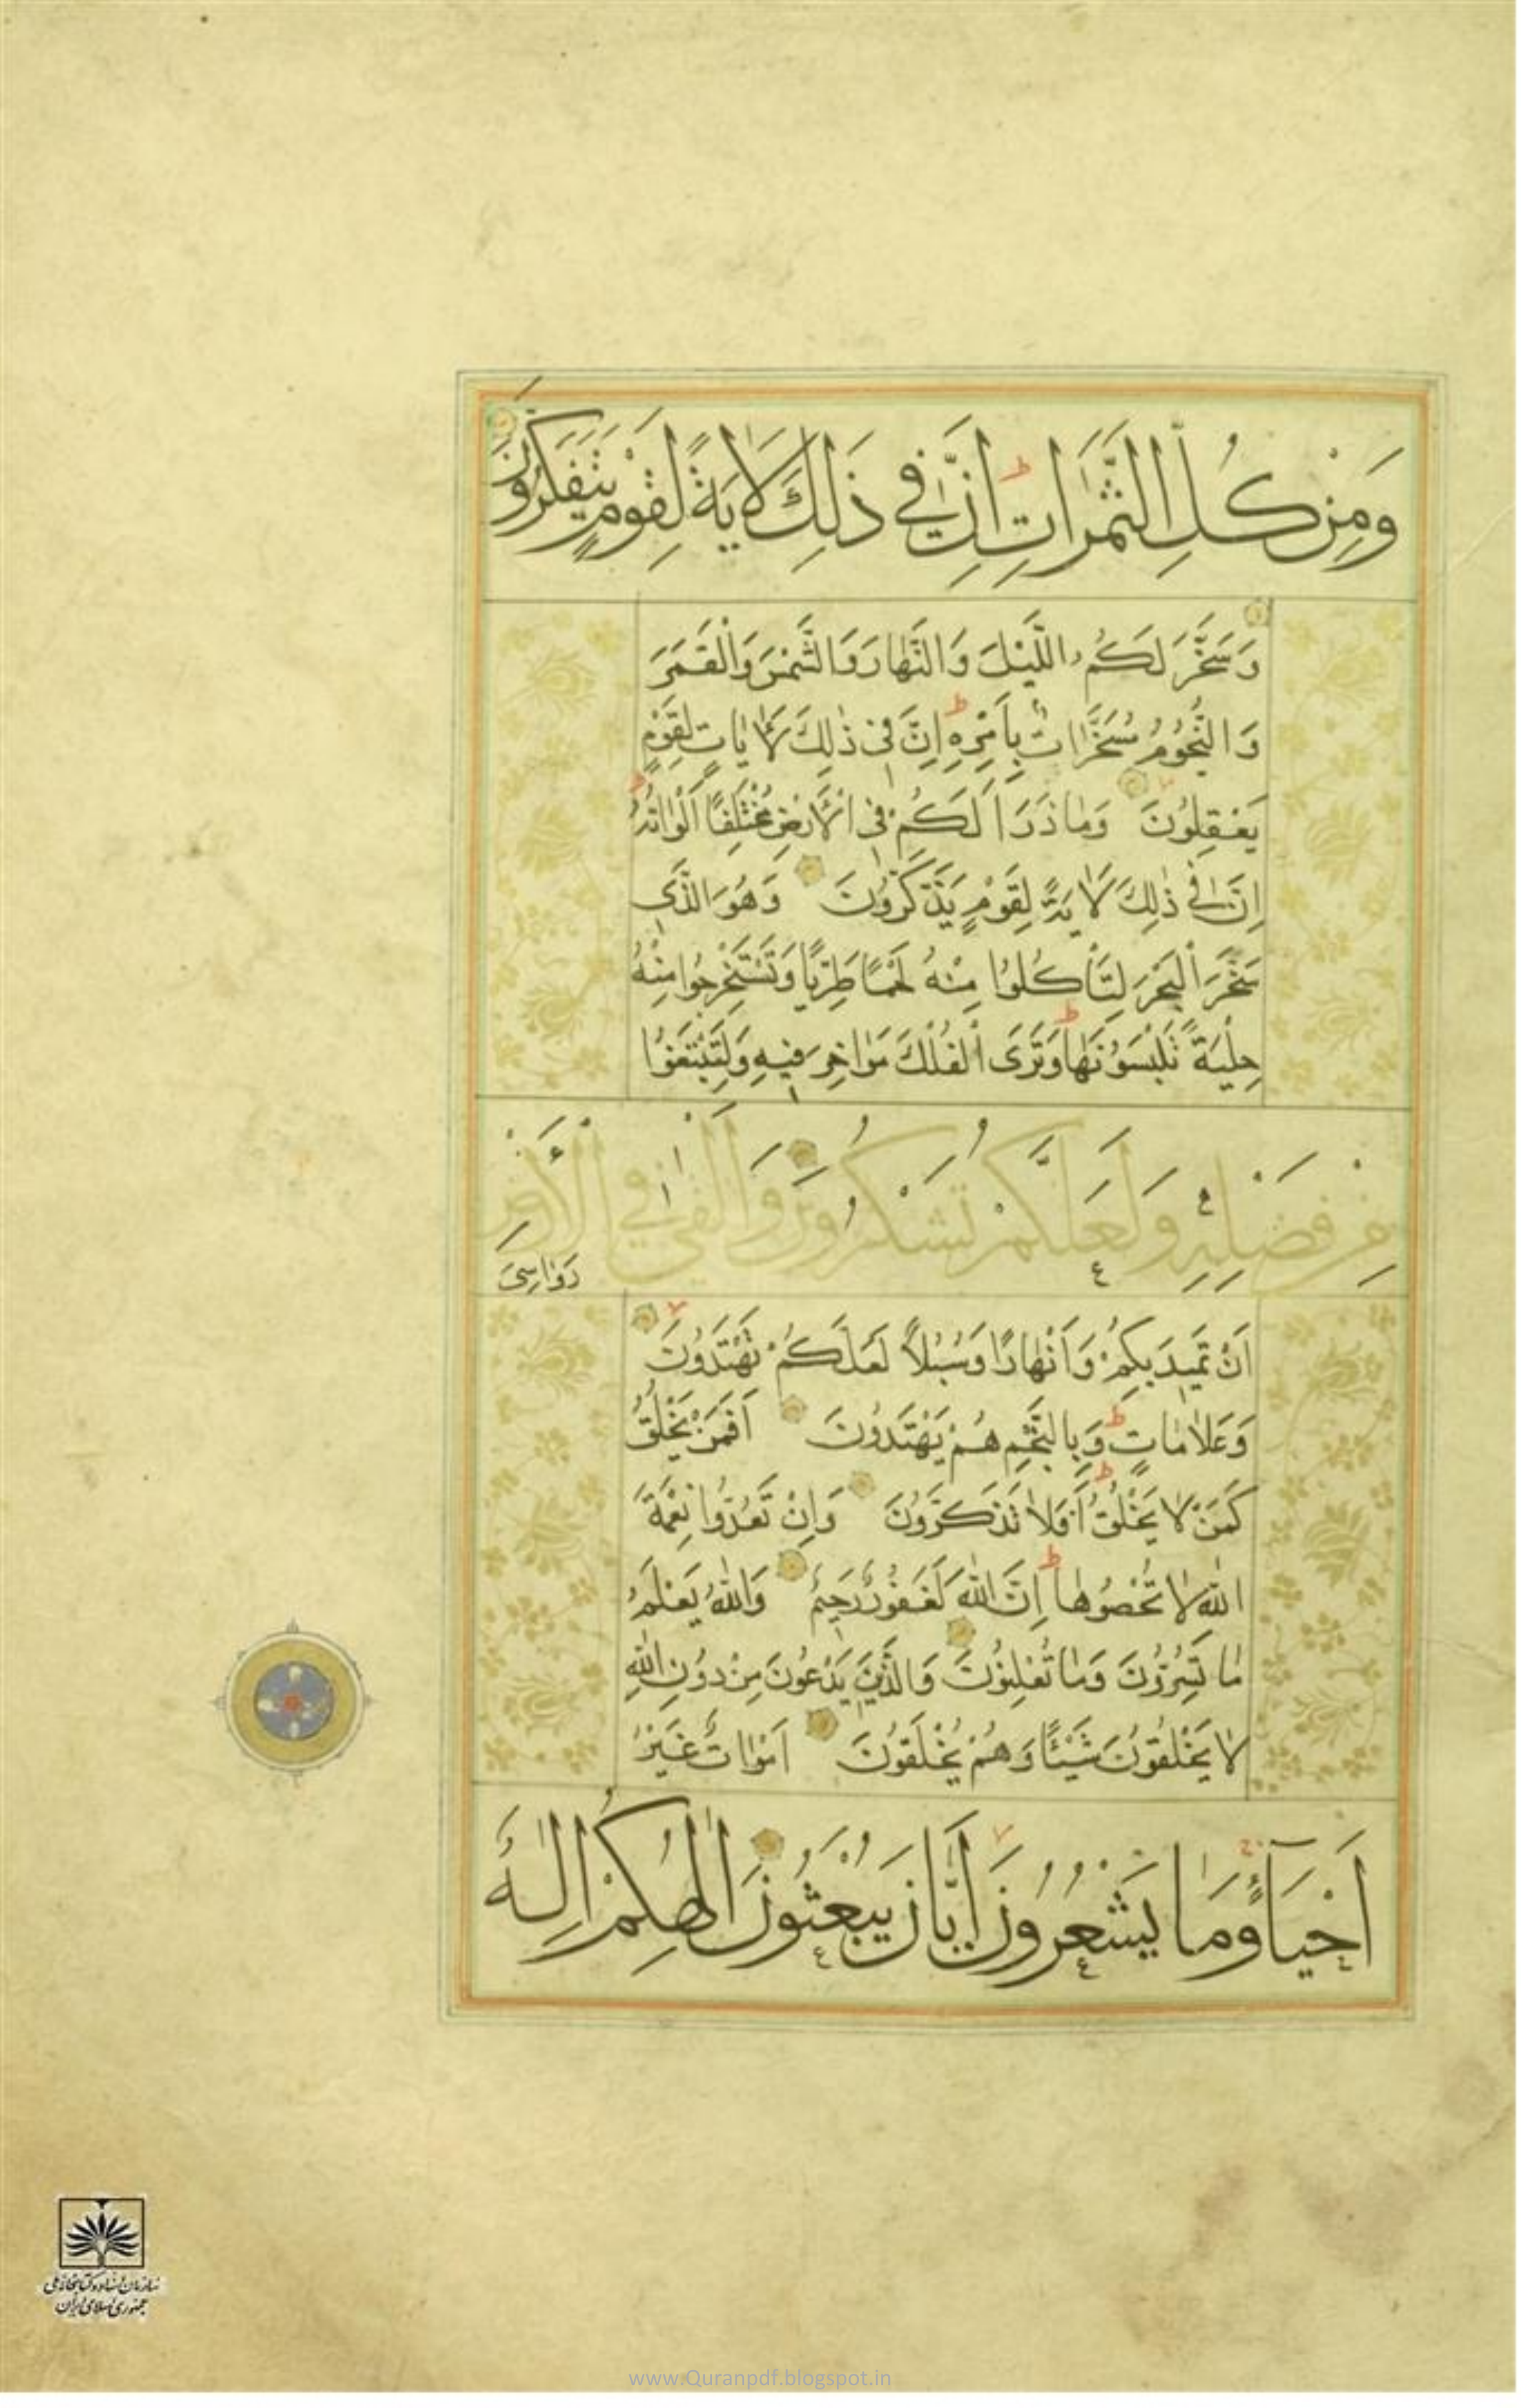 وَمِنْ كُلِّ الثَّمَرَاتِ اِنَّ فِي ذَلِكَ لَاٰيَةً لِقَوْمٍ يَتَفَكَّرُونَ
وَسَخَّرَ لَكُمُ اللَّيْلَ وَالنَّهَارَ وَالشَّمْسَ وَالْقَمَرَ
وَالنُّجُومُ مُسَخَّرَاتٌ بِاَمْرِهِ اِنَّ فِي ذٰلِكَ لَاٰيَاتٍ لِقَوْمٍ
يَعْقِلُونَ وَمَا ذَرَاَ لَكُمْ فِي الْاَرْضِ مُخْتَلِفًا اَلْوَانُهُ
اِنَّ فِي ذٰلِكَ لَاٰيَةً لِقَوْمٍ يَذَّكَّرُونَ وَهُوَ الَّذِي
سَخَّرَ الْبَحْرَ لِتَأْكُلُوا مِنْهُ لَحْمًا طَرِيًّا وَتَسْتَخْرِجُوا مِنْهُ
حِلْيَةً تَلْبَسُونَهَا وَتَرَى الْفُلْكَ مَوَاخِرَ فِيهِ وَلِتَبْتَغُوا
مِنْ فَضْلِهِ وَلَعَلَّكُمْ تَشْكُرُونَ وَاَلْقٰى فِي الْاَرْضِ
رَوَاسِيَ
اَنْ تَمِيدَ بِكُمْ وَاَنْهَارًا وَسُبُلًا لَعَلَّكُمْ تَهْتَدُونَ
وَعَلَامَاتٍ وَبِالنَّجْمِ هُمْ يَهْتَدُونَ اَفَمَنْ يَخْلُقُ
كَمَنْ لَا يَخْلُقُ اَفَلَا تَذَكَّرُونَ وَاِنْ تَعُدُّوا نِعْمَةَ
اللّٰهِ لَا تُحْصُوهَا اِنَّ اللّٰهَ لَغَفُورٌ رَحِيمٌ وَاللّٰهُ يَعْلَمُ
مَا تُسِرُّونَ وَمَا تُعْلِنُونَ وَالَّذِينَ يَدْعُونَ مِنْ دُونِ اللّٰهِ
لَا يَخْلُقُونَ شَيْئًا وَهُمْ يُخْلَقُونَ اَمْوَاتٌ غَيْرُ
اَحْيَآءٍ وَمَا يَشْعُرُونَ اَيَّانَ يُبْعَثُونَ اِلٰهُكُمْ اِلٰهٌ
سازمان اسناد و کتابخانه ملی
جمهوری اسلامی ایران
www.Quranpdf.blogspot.in